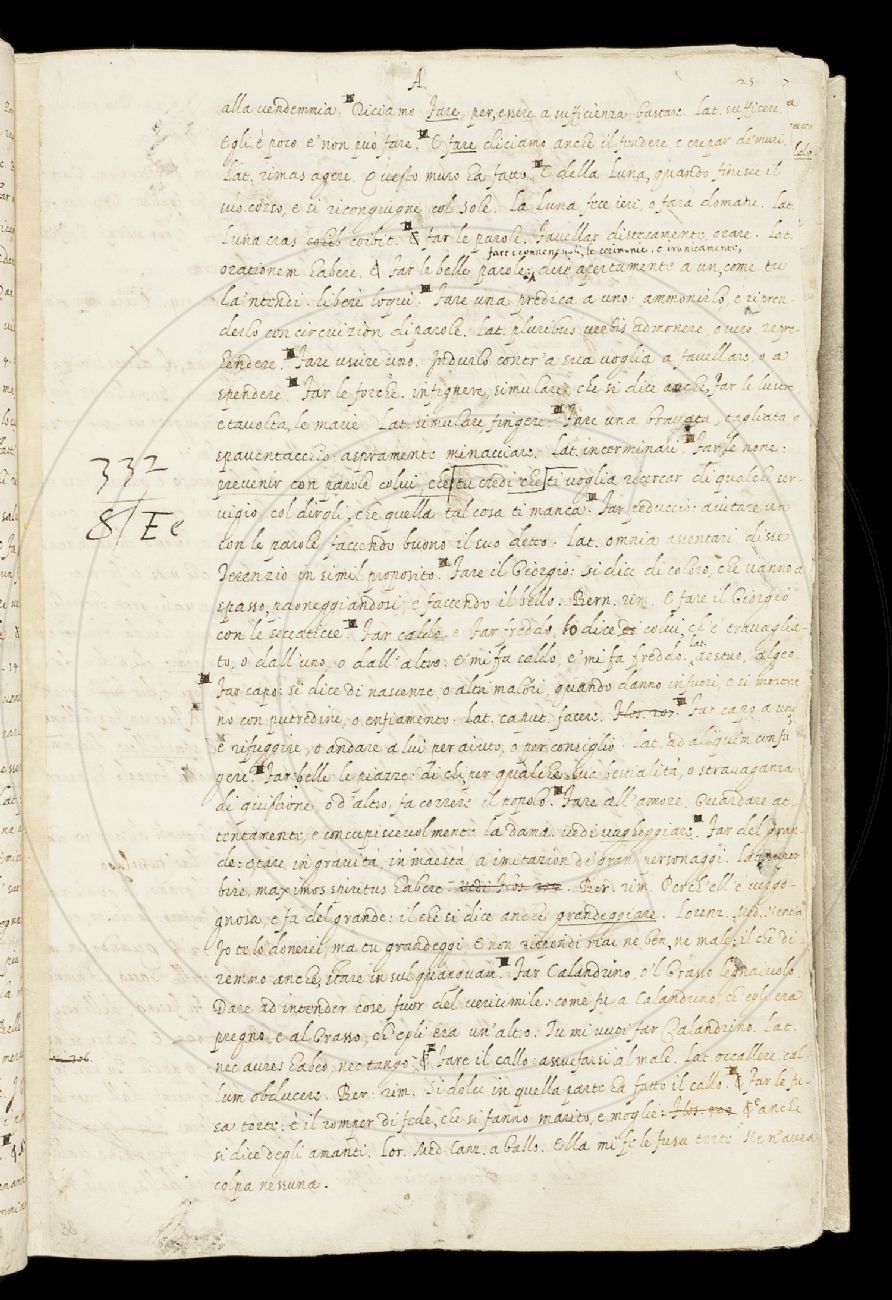 A
25
alla vendemmia. Diciamo Fare, per, essere a sufficienza bastare. Lat. sufficere.
Egli è poco e' non può fare. E fare diciamo anche il fendere e crepar de' muri.
Lat. rimas agere. Questo muro ha fatto. E della Luna, quando finisce il
suo corso, e si ricongiugne col Sole. La luna fece ieri, o fara domane. Lat.
Luna cras coibit. & Far le parole. Favellar distesamente, orare. Lat.
fare i convenevoli, le cerimonie, e ironicamente,
orationem habere. & Far le belle parole: dire apertamente a un, come tu
la 'ntendi. libere loqui. Fare una predica a uno: ammonirlo, e ripren-
derlo con circuizion di parole. Lat. pluribus verbis admonere, o vero repre-
hendere. Fare uscire uno. Indurlo contr'a sua voglia a favellare, o a
spendere. Far le forche. infignere, simulare, che si dice anche, Far le lustre
e tavolta, le marie. Lat. simulare, fingere. Fare una bravata, tagliata o
spaventacchio: aspramente minacciare. Lat. interminari. Far le none:
prevenir con parole colui, che tu credi che ti voglia ricercar di qualche ser-
vigio, col dirgli, che quella tal cosa ti manca. Far peduccio: aiutare un
con le parole, faccendo buono il suo detto. Lat. omnia assentari disse
Terenzio in simil proposito. Fare il Giorgio: si dice di coloro, che vanno a
spasso, paoneggiandosi, e faccendo il bello. Bern. rim. E fare il Giorgio
con le seccaticce. Far caldo, e Far freddo, dice colui, ch'è travaglia-
to, o dall'uno, o dall'altro: E' mi fa caldo, e' mi fa freddo. lat. aestuo, algeo.
Far capo: si dice di nascenze, o altri malori, quando danno in fuori, e si mostra
no con putredine, o enfiamento. Lat. caput facere. Far capo a uno
è rifuggire, o andare a lui per aiuto, o per consiglio. Lat. ad aliquem confu
gere. Far belle le piazze: di chi, per qualche sua bestialità, o stravaganza
di quistione, o d'altro, fa correre il popolo. Fare all'amore. Guardare at-
tentamente, e concupiscevolmente la dama. vedi vagheggiare. Far del gran-
de: stare in gravità, in maestà, a imitazion de' gran personaggi. Lat.
bire, maximos spiritus habere. Ber. rim. Perch'ell'è vergo-
gnosa, e fa del grande: il che si dice anche grandeggiare. Lorenz. Med. Nencia.
Io te lo donerei, ma tu grandeggi E non rispondi mai ne ben, ne male: il che di
remmo anche, stare in sul quamquam. Far Calandrino, o 'l Grasso legnaiuolo
Dare ad intender cose fuor del verisimile: come fu a Calandrino, ch'egli era
pregno, e al Grasso, ch'egli era un'altro. Tu mi vuoi far Calandrino. Lat.
nec aures habeo, nec tango. & Fare il callo: assuefarsi al male. Lat. occallere, cal-
lum obducere. Ber. rim. Si dolce in quella parte ha fatto il callo. & Far le fu-
sa torte: è il romper di fede, che si fanno marito, e moglie: & è anche
si dice degli amanti. Lor. Med. Canz. a ballo. Ella mi fe le fusa torte Ne n'avea
colpa nessuna.
332
8/ Ee
206.
38